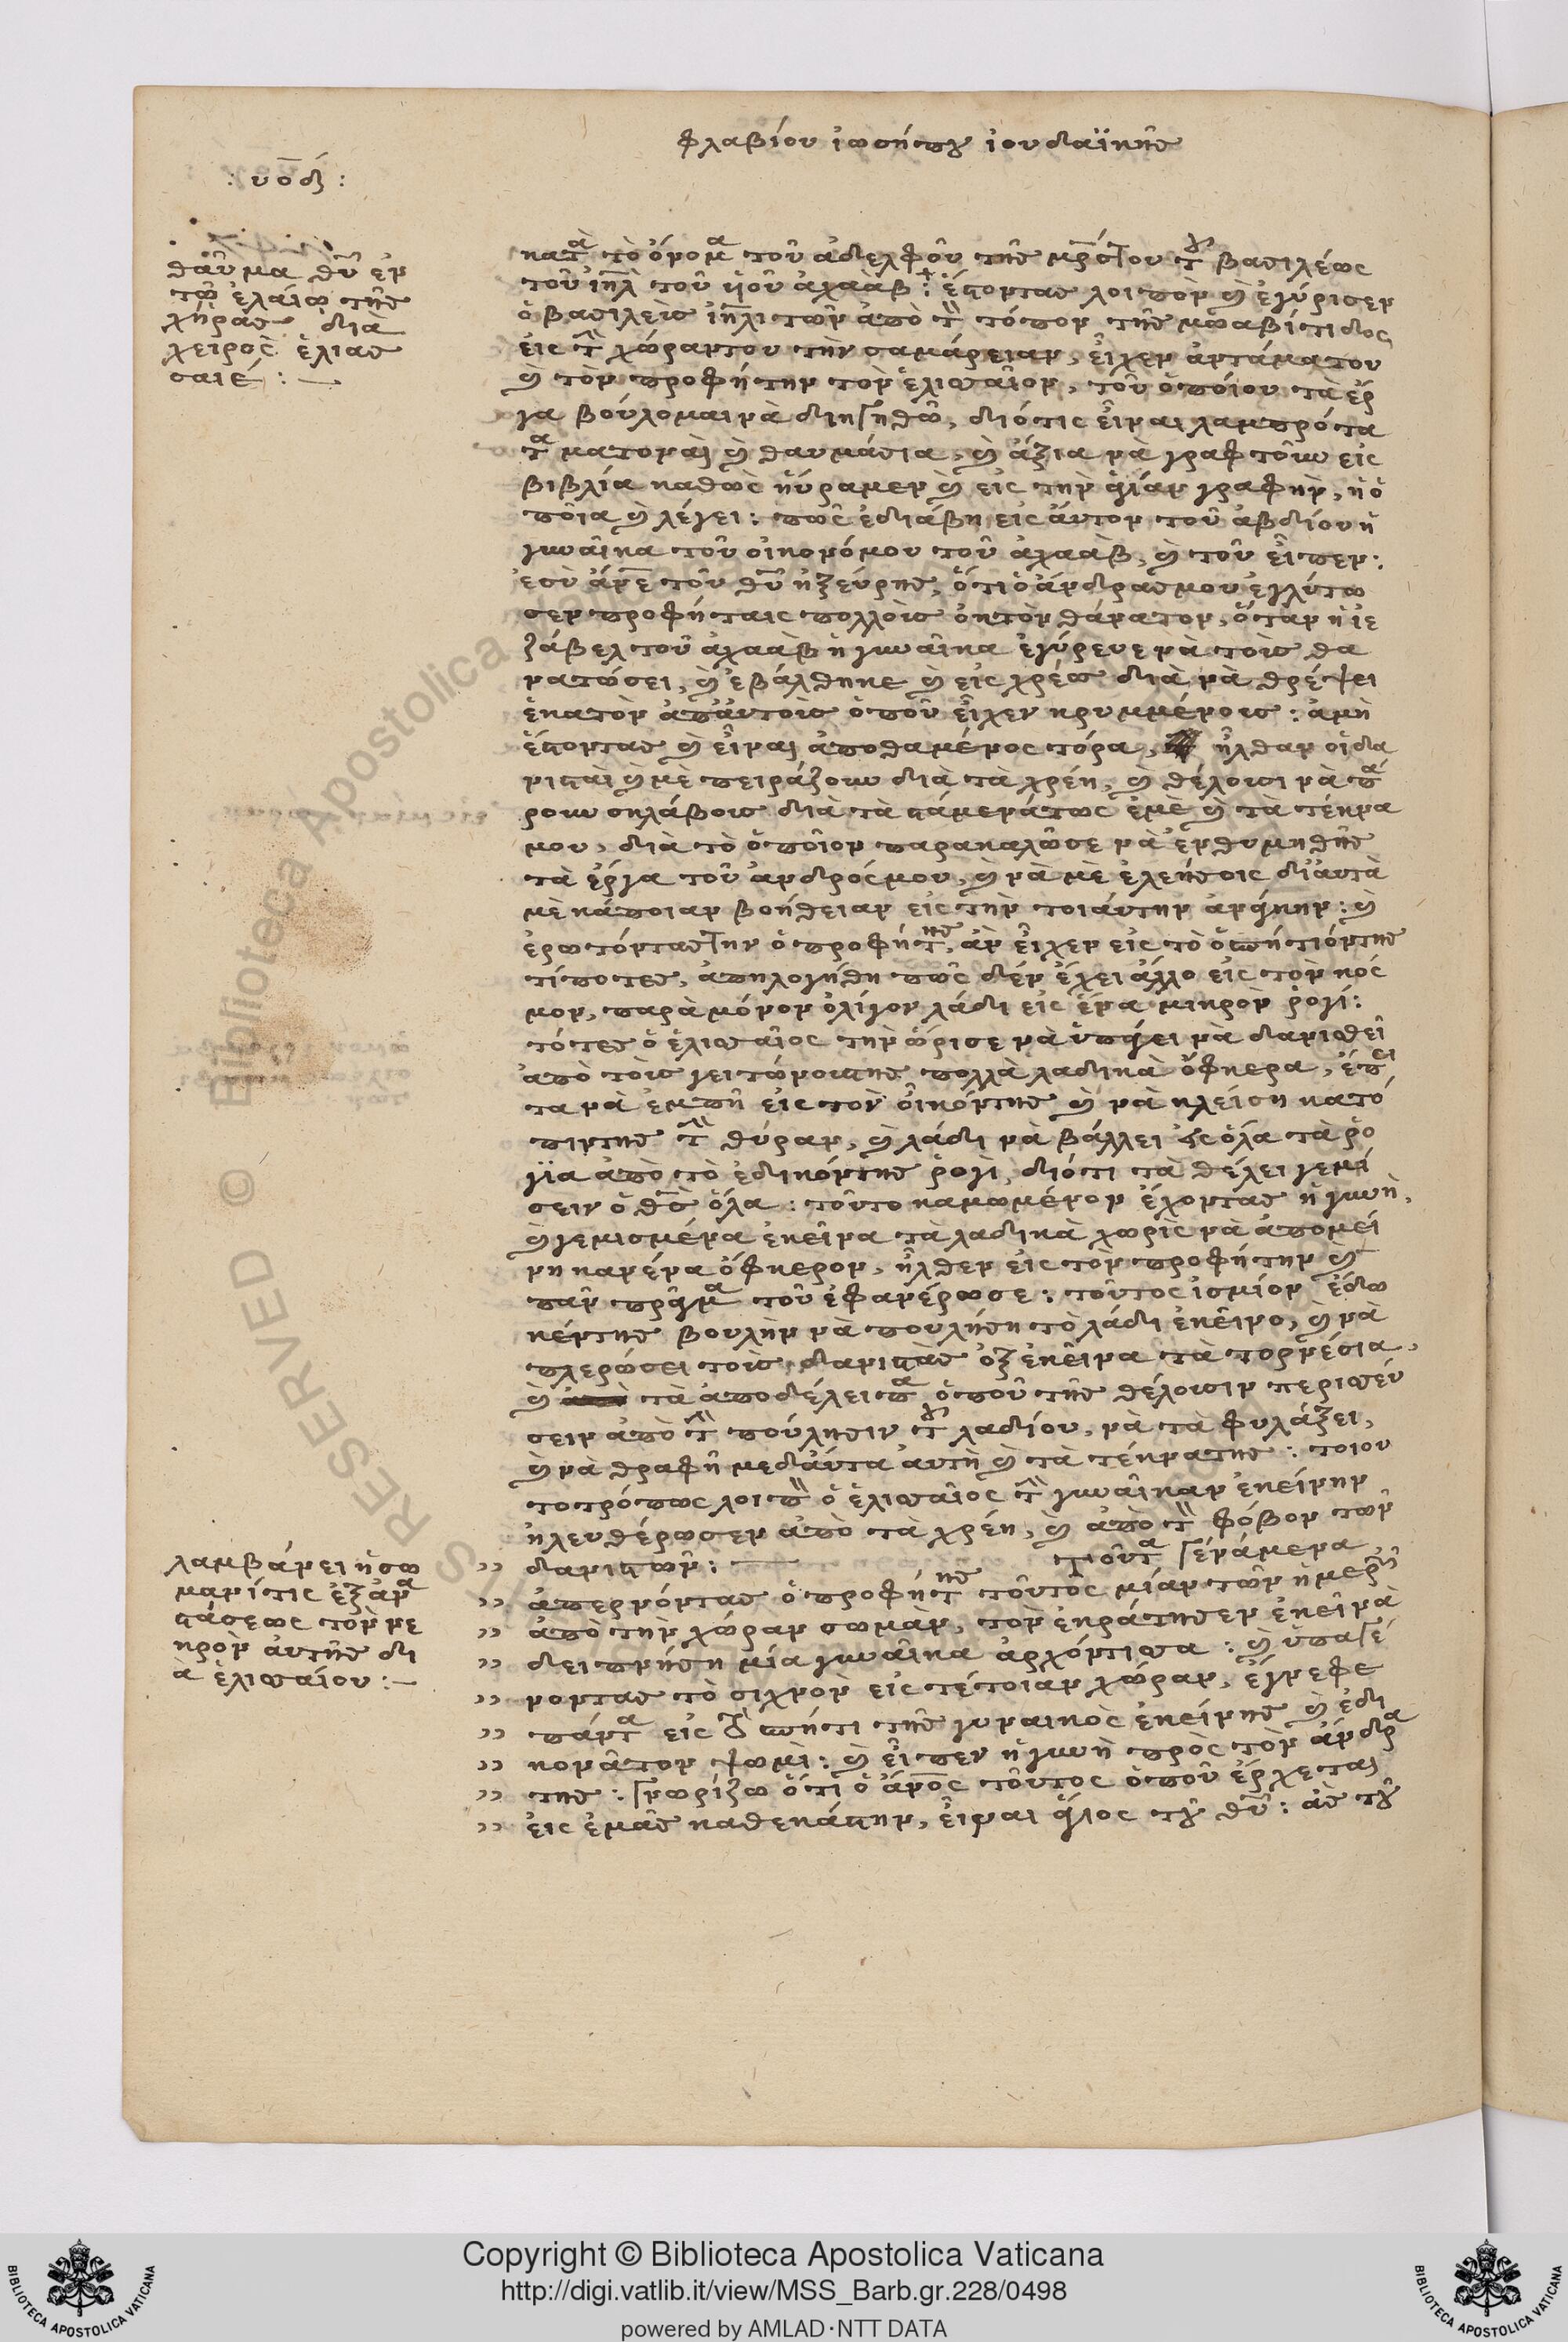 φλαβίου ἰωσήπου ἰουδαϊκῆς
: υοδ :
θαῦμα θῡ ἐν
τῶ ἐλαίω τῆς
χήρας διὰ
χειρὸς ἑλισ
σαιέ : —
κατὰ τὸ ὄνομα τοῦ ἀδελφοῦ τῆς μρ̄ός του τοῦ βασιλέως
τοῦ ἰη̄λ τοῦ υἱοῦ ἀχαάβ : ἔστοντας λοιπὸν καὶ ἐγύρισεν
ὁ βασιλεὺς ἰη̄λιτῶν ἀπὸ τὸν τόπον τῆς μωαβίτιδος
εἰς τὴν χώραν του τὴν σαμάρειαν, εἶχεν ἀντάμα του
καὶ τὸν προφήτην τὸν ἑλισσαῖον, τοῦ ὁποίου τὰ ἔρ
γα βούλομαι νὰ διηγηθῶ, διότις εἶναι λαμπρότα
τα ματοναὶ καὶ θαυμάσια, καὶ ἄξια νὰ γραφτοῦν εἰς
βιβλία καθὼς ηὕραμεν καὶ εἰς τὴν ἁγίαν γραφὴν, ἡ ὁ
ποῖα καὶ λέγει : πῶς ἐδιάβη εἰς αὐτον τοῦ ἀβδίου ἡ
γυναῖκα τοῦ οἰκονόμου τοῦ ἀχαὰβ, καὶ τοῦ εἶπεν :
ἐσὺ ἄνε τοῦ θῡ ἠξεύρης, ὅτι ὁ ἄνδρας μου ἐγλύτω
σεν προφήταις πολλοὺς ἐκ τὸν θάνατον, ὅταν ἡ ἰε
ζάβελ τοῦ ἀχαὰβ ἡ γυναῖκα ἐγύρευε νὰ τοὺς θα
νατώσει, καὶ ἐβάλθηκε καὶ εἰς χρέος διὰ νὰ θρέψει
ἑκατὸν ἀπ' αὐτοὺς ὁποῦ εἶχεν κρυμμένους : ἀμὴ
ἔστοντας καὶ εἶναι ἀποθαμένος τόρα, ἦλθαν οἱ δα
νισταὶ καὶ μὲ πειράζουν διὰ τὰ χρέη, καὶ θέλουσι νὰ πά
ρουν σκλάβους διὰ τὰ στάμενάτως ἐμὲ καὶ τὰ τέκνα
μου, διὰ τὸ ὁποῖον παρακαλῶσε νὰ ἐνθυμηθῆς
τὰ ἔργα τοῦ ἀνδρός μου, καὶ νὰ μὲ ἐλεήσοις δι' αὐτὰ
μὲ κάποιαν βοήθειαν εἰς τὴν τοιαύτην ἀνάγκην : καὶ
ἐρωτόντας την ὁ προφήτης, ἂν εἶχεν εἰς τὸ ὀσπήτιόν της
τίποτες, ἀπηλογήθη πῶς δὲν ἔχει ἄλλο εἰς τὸν κόσ
μον, παρὰ μόνον ὀλίγον λάδι εἰς ἕνα μικρὸν ῥογί :
τότες ὁ ἑλισσαῖος τὴν ὥρισε νὰ ὑπάγει νὰ δανισθεῖ
ἀπὸ τοὺς γειτώνους της πολλὰ λαδικὰ ὄφκερα, ἔπει
τα νὰ ἐμπῆ εἰς τὸν οἶκόν της καὶ νὰ κλείση κατό
πιν της τὴν θύραν, καὶ λάδι νὰ βάλλει εἰς ὅλα τὰ ῥο
γία ἀπὸ τὸ ἐδικόν της ῥογὶ, διότι τὰ θέλει γεμί
σειν ὁ θς̄ ὅλα : τοῦτο καμωμένον ἔχοντας ἡ γυνὴ,
καὶ γεμισμένα ἐκεῖνα τὰ λαδικὰ χωρὶς νὰ ἀπομεί
νη κανένα ὄφκερον, ἦλθεν εἰς τὸν προφήτην καὶ
πᾶν πρᾶγμα τοῦ ἐφανέρωσε : τοῦτος ἰσμίον ἔδω
κέν της βουλὴν νὰ πουλήση τὸ λάδι ἐκεῖνο, καὶ νὰ
πλερώσει τοὺς δανιστὰς ὀξ ἐκεῖνα τὰ τορνέσια,
καὶ τὰ ἀποδέλειπα ὁποῦ τῆς θέλουσιν περισσεύ
σειν ἀπὸ τὴν πούλησιν τοῦ λαδίου, νὰ τὰ φυλάξει,
καὶ νὰ θραφῆ μεδαύτα αὐτὴ καὶ τὰ τέκνα της : τοιου
τοτρόπως λοιπὸν ὁ ἑλισσαῖος τὴν γυναῖκαν ἐκείνην
ἠλευθέρωσεν ἀπὸ τὰ χρέη, καὶ ἀπὸ τὸν φόβον τῶν
δανιστῶν : — Τοῦτα γενάμενα,
λαμβάνει ἡ σω
μανίτις ἐξ ἀνα
στάσεως τὸν νε
κρὸν αὐτῆς δι
ὰ ἑλισσαίου : —
ἀπερνόντας ὁ προφήτης τοῦτος μίαν τῶν ἡμερῶν
ἀπὸ τὴν χώραν σωμὰν, τὸν ἐκράτησεν ἐκεῖ νὰ
δειπνήση μία γυναῖκα ἀρχόντισσα : καὶ ὑπαγέ
νοντας τὸ σιχνὸν εἰς τέτοιαν χώραν, ἔγνεφε
πάντα εἰς τὸ σπήτι τῆς γυναικὸς ἐκείνης καὶ ἐδι
κονᾶτον ψωμὶ : καὶ εἶπεν ἡ γυνὴ πρὸς τὸν ἄνδρα
της : γνωρίζω ὅτι ὁ ἄνος τοῦτος ὁποῦ ἔρχεται
εἰς ἐμᾶς καθεκάστην, εἶναι ἅγιος τοῦ θῡ : ἂς τοῦ
Copyright © Biblioteca Apostolica Vaticana
http://digi.vatlib.it/view/MSS_Barb.gr.228/0498
powered by AMLAD·NTT DATA